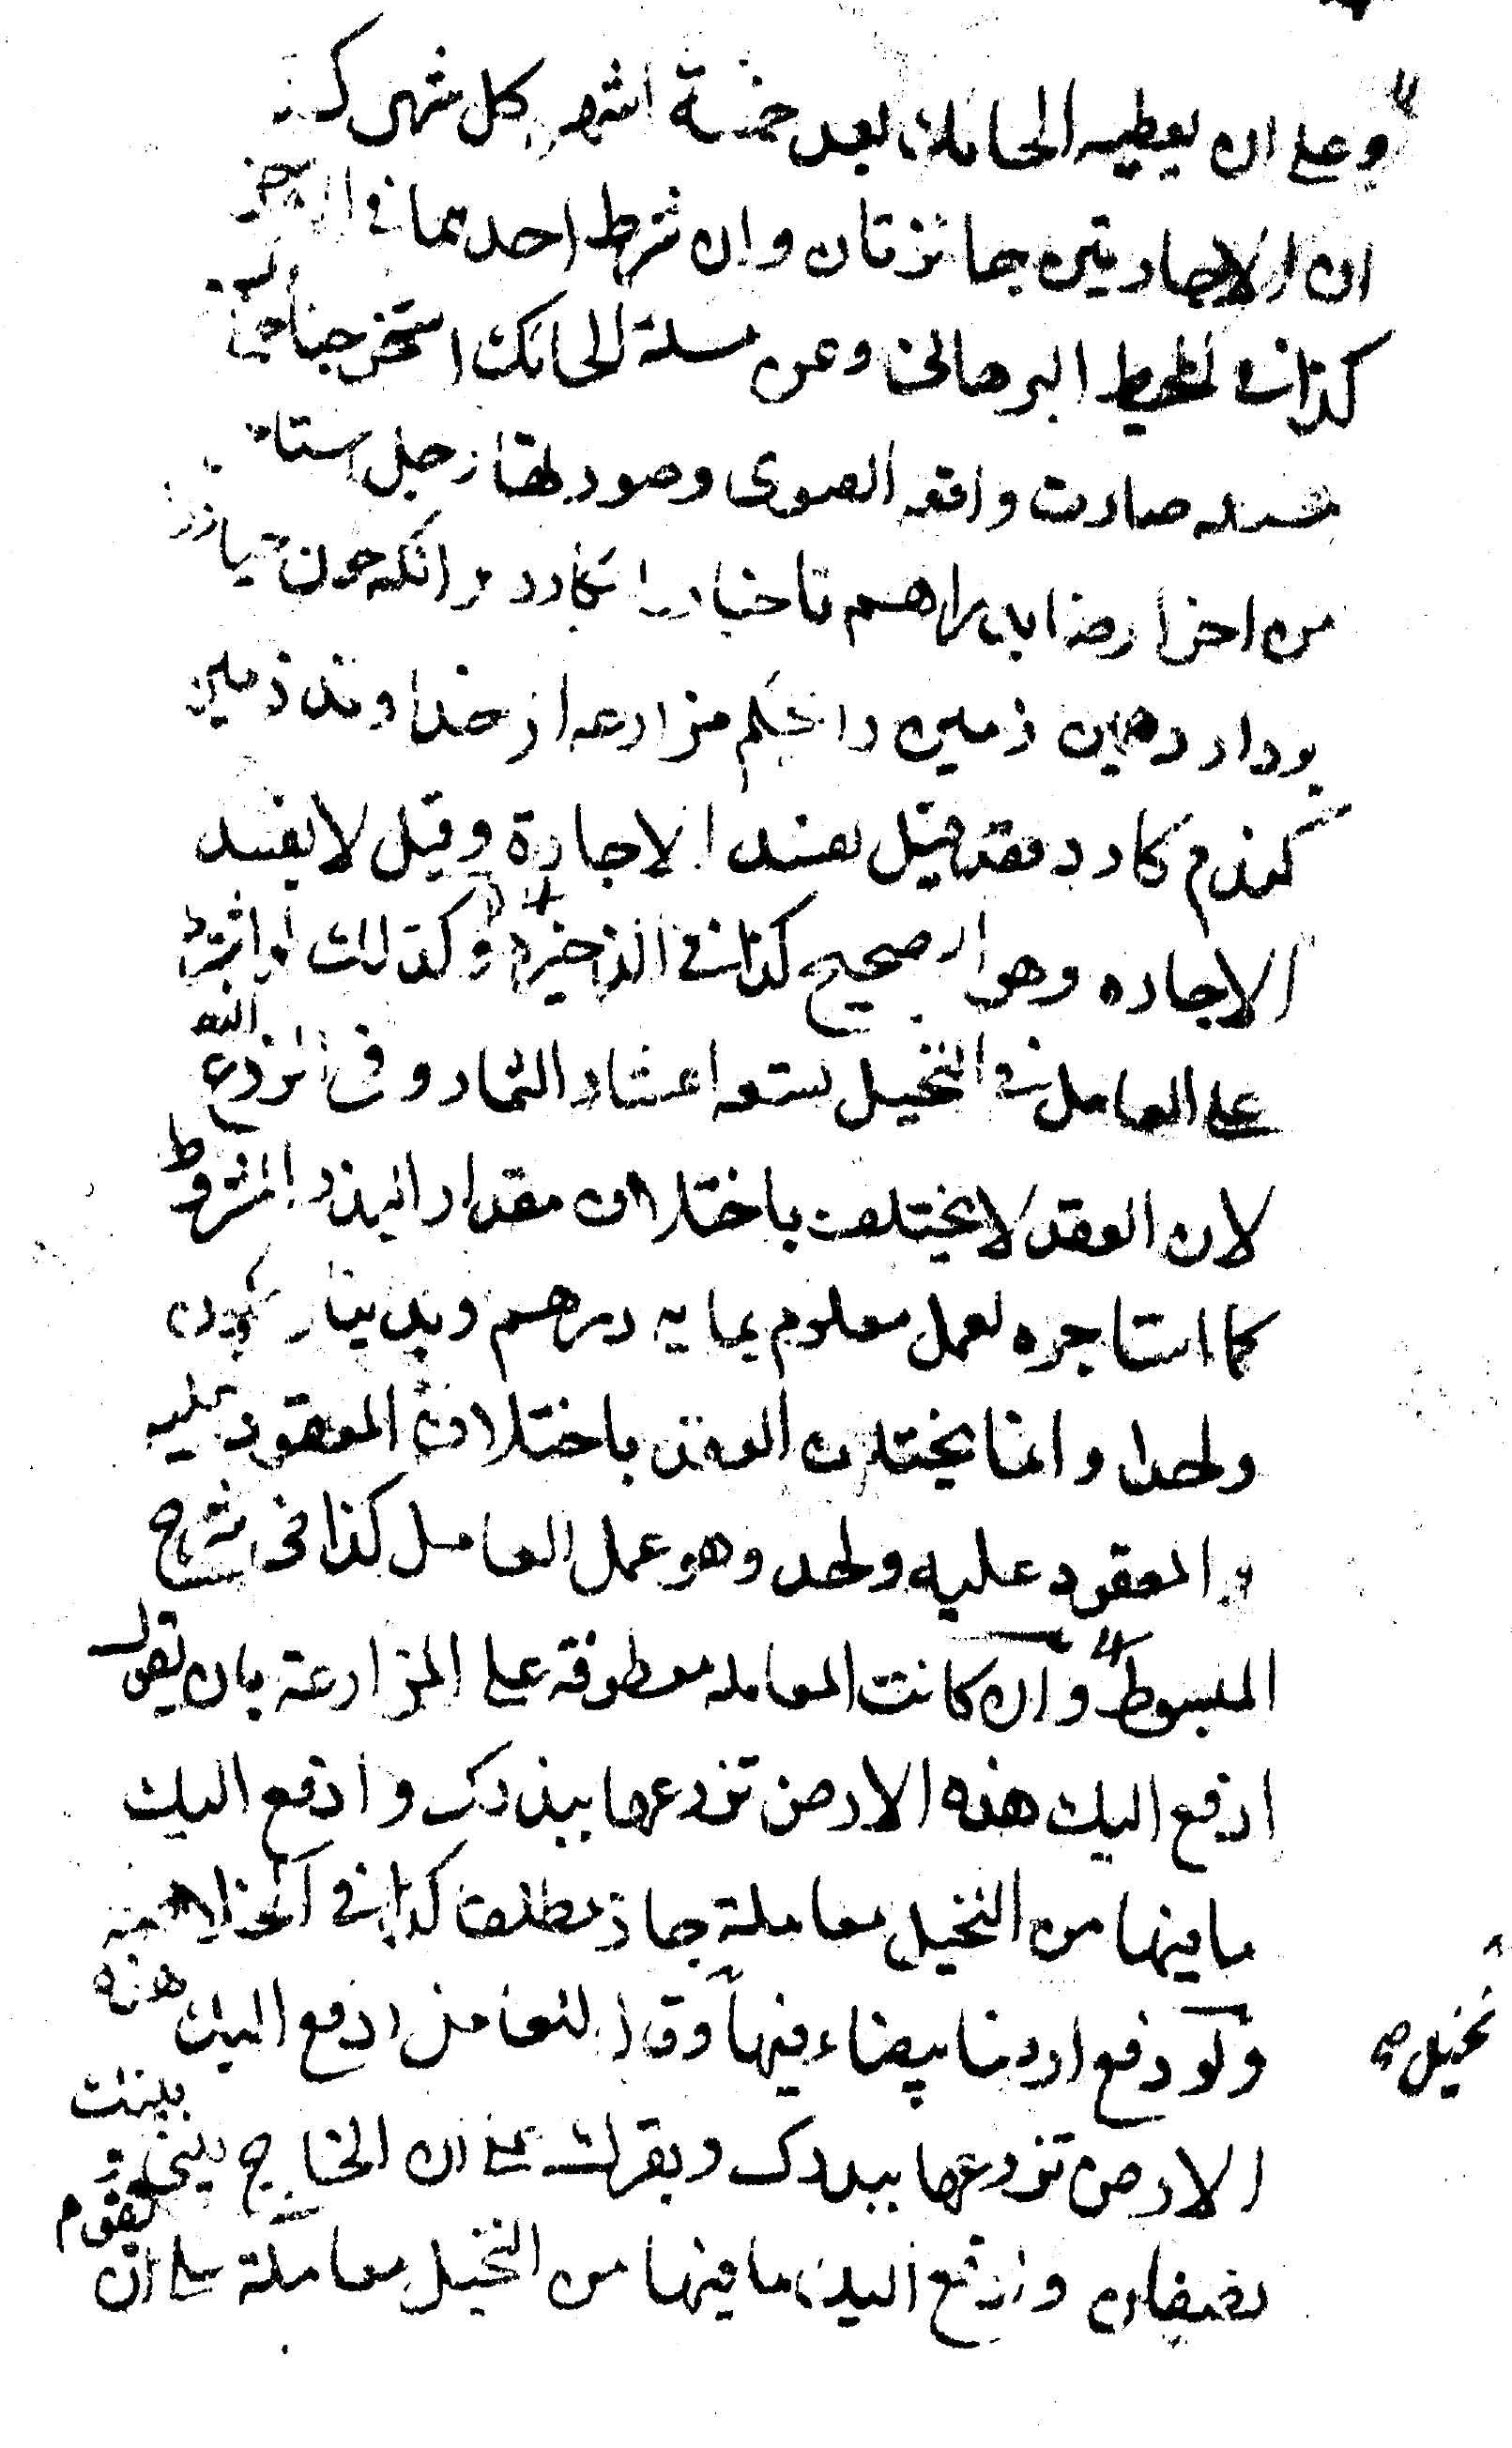 وعلى ان يعطيه الحايك بعد خمسة اشهر كل شهر كذا
ان الاجارتين جائزتان وان شرط احديهما في الاخر
كذا في المحيط البرهاني وعن مسئلة الحائك استخرجنا
مسئله صارت واقعه الفتوى وصورتها رجل استاجر
من اخر ارضا بدراهم تا خيار را بكارد بر انكه چون خيار
بردارد همين زمين را بحكم مزارعه از خداوند زمين
كندم كارد فقد قيل يفسد الاجارة وقيل لا يفسد
الاجاره وهو الصحيح كذا في الذخيره وكذلك لو اشترط
على العامل في النخيل تسعه اعشار الثمار وفي الزرع النصف
لان العقد لا يختلف باختلاف مقدار البذر المشروط
كما استاجره لعمل معلوم بمايه درهم وبدينار يكون
واحدا وانما يختلف العقد باختلاف المعقود عليه
والمعقود عليه واحد وهو عمل العامل كذا في شرح
المبسوط وان كانت المعامله معطوفه على المزارعة بان يقول
ادفع اليك هذه الارض تزرعها ببذرك وادفع اليك
ما فيها من النخيل معاملة جاز مطلقا كذا في الخلاصه
ولو دفع ارضا بيضاء فيها وقال للعامل ادفع اليك هذه
نخيل صح
الارض تزرعها ببذرك وبقرك على ان الخارج بيني وبينك
نصفان وادفع اليك ما فيها من النخيل معاملة على ان تقوم